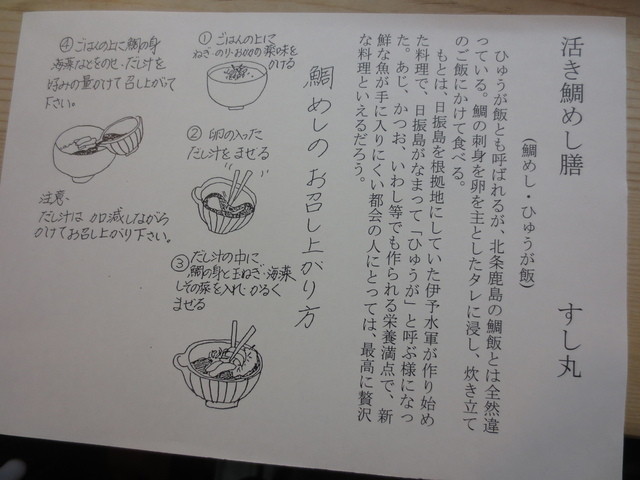 活き鯛めし膳　すし丸
(鯛めし・ひゅうが飯)
ひゅうが飯とも呼ばれるが、北条鹿島の鯛飯とは全然違
っている。鯛の刺身を卵を主としたタレに浸し、炊き立て
のご飯にかけて食べる。
もとは、日振島を根拠地にしていた伊予水軍が作り始め
た料理で、日振島がなまって「ひゅうが」と呼ぶ様になっ
た。あじ、かつお、いわし等でも作られる栄養満点で、新
鮮な魚が手に入りにくい都会の人にとっては、最高に贅沢
な料理といえるだろう。
鯛めしのお召し上がり方
① ごはんの上に
ねぎ・のり・おこのみの薬味を
かける
② 卵の入った
だし汁をまぜる
③ だし汁の中に
鯛の身と玉ねぎ・海藻
しその葉を入れ・かるく
まぜる
④ ごはんの上に鯛の身
海藻などをのせ・だし汁を
好みの量かけて召し上がって
下さい。
注意・
だし汁は加減しながら
かけてお召し上がり下さい。